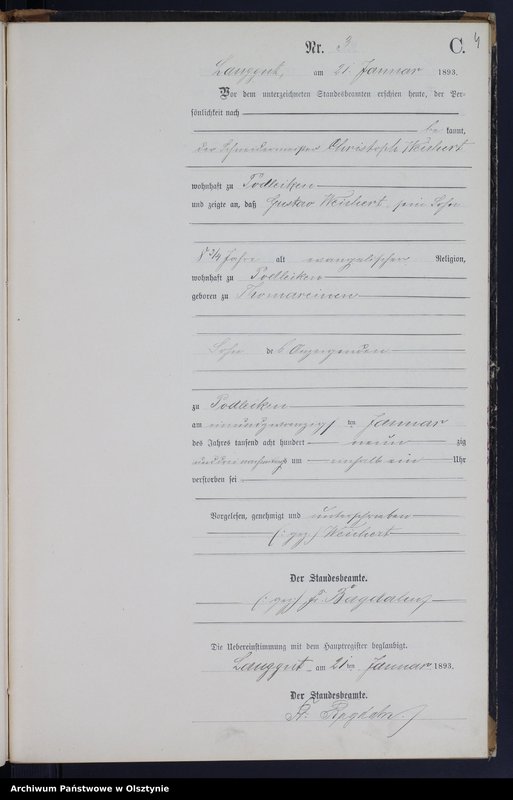 Nr. 3 C. 4
Langgut, am 21 Januar 1893.
Vor dem unterzeichneten Standesbeamten erschien heute, der Per-
sönlichkeit nach
be kannt,
der Schneidermeister Christoph Weichert
wohnhaft zu Podleiken
und zeigte an, daß Gustav Weichert, sein Sohn
3/4 Jahre alt evangelischer Religion,
wohnhaft zu Podleiken
geboren zu Thomareinen
Sohn des Anzeigenden
zu Podleiken
am einundzwanzig ten Januar
des Jahres tausend acht hundert neun zig
und drei nachmittags um einhalb ein Uhr
verstorben sei
Vorgelesen, genehmigt und unterschrieben
(: gez:) Weichert
Der Standesbeamte.
(: gez:) Fr. Bagdahn
Die Uebereinstimmung mit dem Hauptregister beglaubigt.
Langgut am 21ten Januar 1893.
Der Standesbeamte.
Fr. Bagdahn
Archiwum Państwowe w Olsztynie